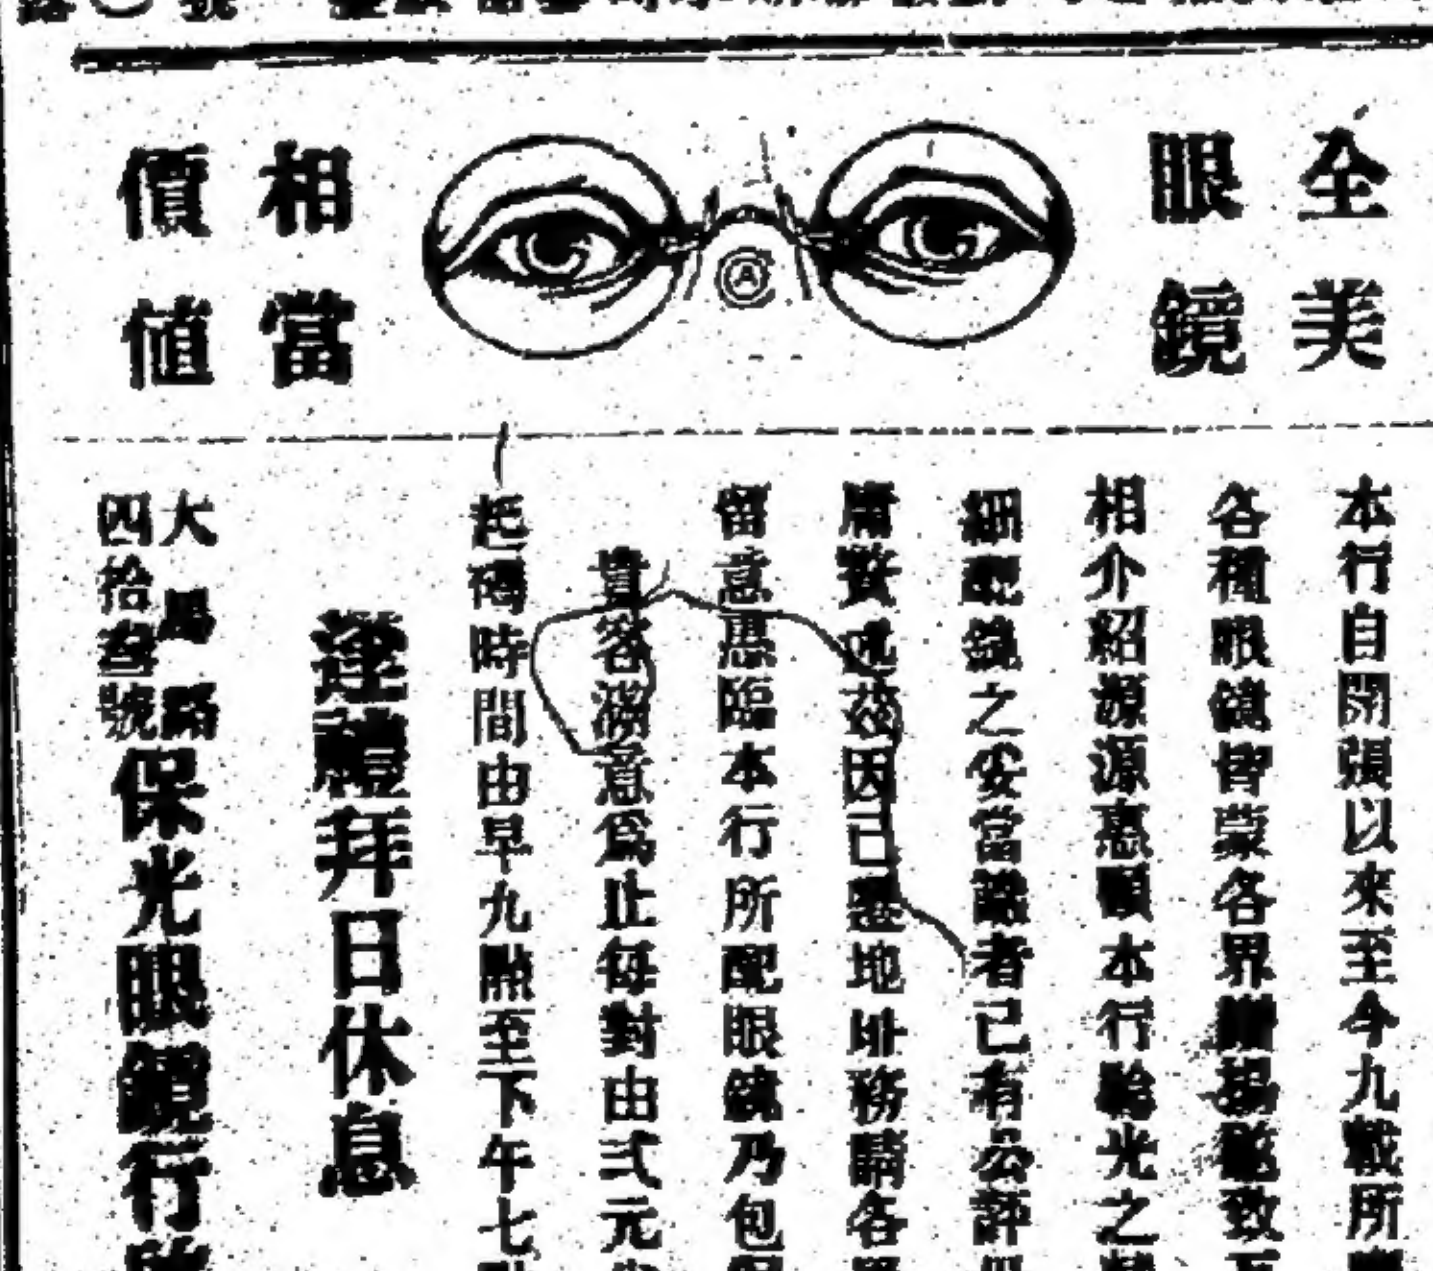 全美
眼鏡
相當
價値
本行自開張以來至今九載所
各種眼鏡皆蒙各界贊揚
相介紹源源惠顧本行驗光之
細配鏡之妥當識者已有公評
庸贅述茲因已遷地址務請各
留意惠臨本行所配眼鏡乃包
貴客滿意爲止每對由弍元
起碼時間由早九點至下午七
逢禮拜日休息
大馬路
四拾叁號
保光眼鏡行